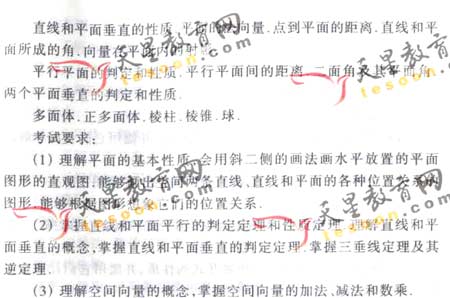 直线和平面垂直的性质.平面的法向量.点到平面的距离.直线和平
面所成的角.向量在平面内的射影.
平行平面的判定和性质.平行平面间的距离.二面角及其平面角.
两个平面垂直的判定和性质.
多面体.正多面体.棱柱.棱锥.球.
考试要求:
(1) 理解平面的基本性质,会用斜二侧的画法画水平放置的平面
图形的直观图,能够画出空间两条直线、直线和平面的各种位置关系的
图形,能够根据图形想象它们的位置关系.
(2) 掌握直线和平面平行的判定定理和性质定理.理解直线和平
面垂直的概念,掌握直线和平面垂直的判定定理.掌握三垂线定理及其
逆定理.
(3) 理解空间向量的概念,掌握空间向量的加法、减法和数乘.
天星教育网
tesoon.com
天星教育网
tesoon.com
天星教育网
tesoon.com
天星教育网
tesoon.com